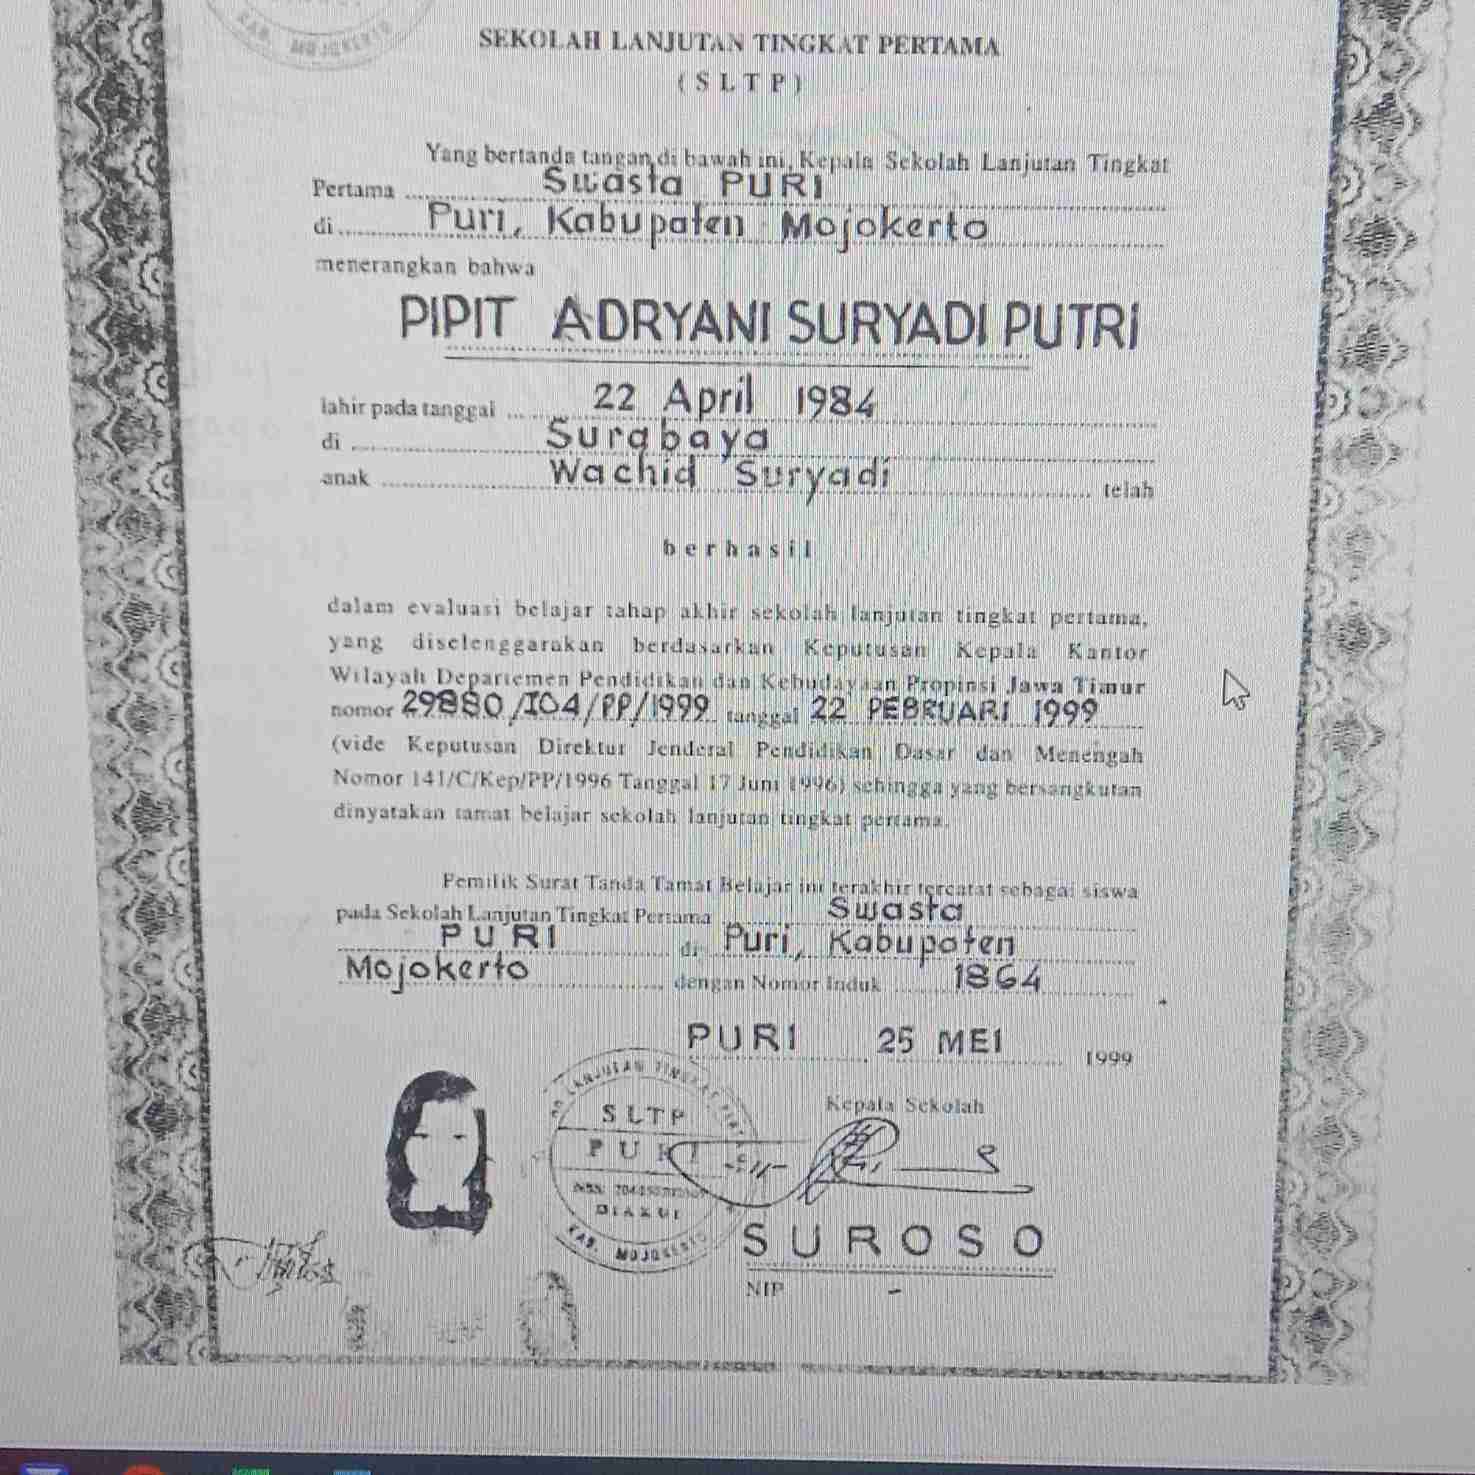 KAB. MOJOKERTO
SEKOLAH LANJUTAN TINGKAT PERTAMA
( S L T P )
Yang bertanda tangan di bawah ini, Kepala Sekolah Lanjutan Tingkat
Pertama Swasta PURI
di Puri, Kabupaten Mojokerto
menerangkan bahwa
PIPIT ADRYANI SURYADI PUTRI
lahir pada tanggal 22 April 1984
di Surabaya
anak Wachid Suryadi telah
berhasil
dalam evaluasi belajar tahap akhir sekolah lanjutan tingkat pertama,
yang diselenggarakan berdasarkan Keputusan Kepala Kantor
Wilayah Departemen Pendidikan dan Kebudayaan Propinsi Jawa Timur
nomor 29880/I04/PP/1999 tanggal 22 PEBRUARI 1999
(vide Keputusan Direktur Jenderal Pendidikan Dasar dan Menengah
Nomor 141/C/Kep/PP/1996 Tanggal 17 Juni 1996) sehingga yang bersangkutan
dinyatakan tamat belajar sekolah lanjutan tingkat pertama.
Pemilik Surat Tanda Tamat Belajar ini terakhir tercatat sebagai siswa
pada Sekolah Lanjutan Tingkat Pertama Swasta
PURI di Puri, Kabupaten
Mojokerto dengan Nomor Induk 1864
PURI 25 MEI 1999
LANJUTAN TINGKAT
SLTP
Kepala Sekolah
PURI
DIAKUI
KAB. MOJOKERTO
SUROSO
NIP -